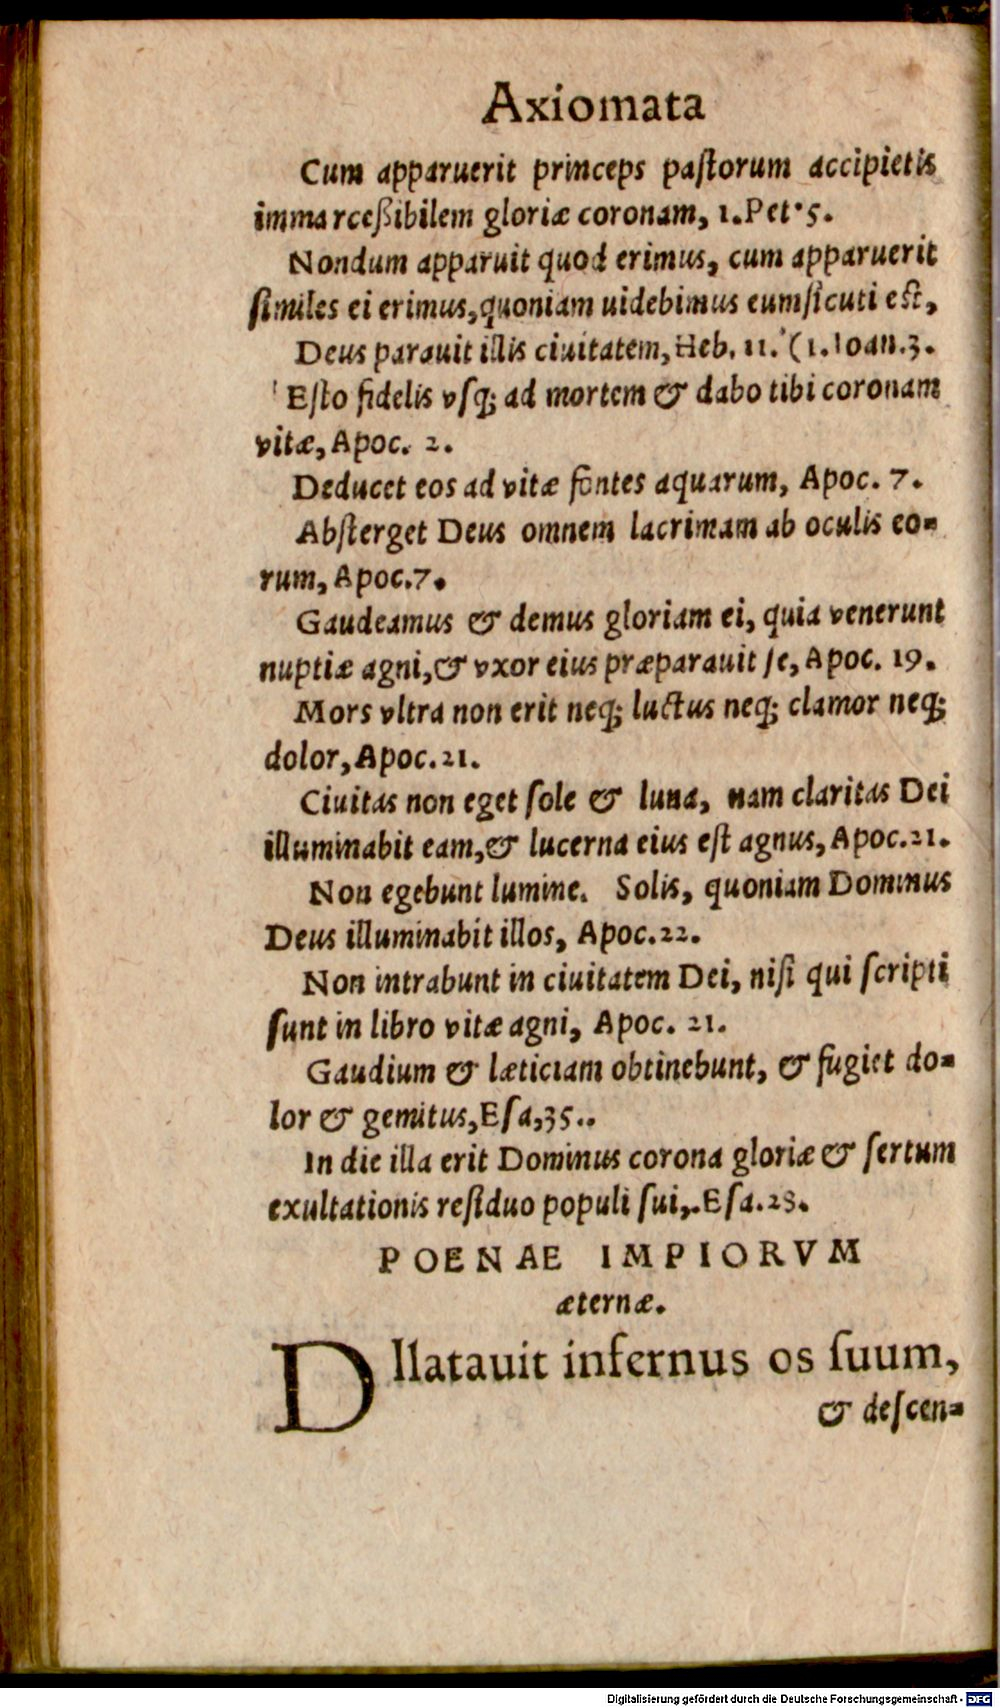 Axiomata
Cum apparuerit princeps paſtorum accipietis
immarceßibilem gloriæ coronam, 1.Pet.5.
Nondum apparuit quod erimus, cum apparuerit
ſimiles ei erimus,quoniam uidebimus eumſicuti eſt,
Deus parauit illis ciuitatem, Heb. 11. (1.Ioan.3.
Eſto fidelis vſq; ad mortem & dabo tibi coronam
vitæ, Apoc. 2.
Deducet eos ad vitæ fontes aquarum, Apoc. 7.
Abſterget Deus omnem lacrimam ab oculis eo-
rum, Apoc.7.
Gaudeamus & demus gloriam ei, quia venerunt
nuptiæ agni,& vxor eius præparauit ſe, Apoc. 19.
Mors vltra non erit neq; luctus neq; clamor neq;
dolor, Apoc.21.
Ciuitas non eget ſole & luna, nam claritas Dei
illuminabit eam,& lucerna eius eſt agnus, Apoc.21.
Non egebunt lumine. Solis, quoniam Dominus
Deus illuminabit illos, Apoc.22.
Non intrabunt in ciuitatem Dei, niſi qui ſcripti
ſunt in libro vitæ agni, Apoc. 21.
Gaudium & læticiam obtinebunt, & fugiet do-
lor & gemitus,Eſa,35..
In die illa erit Dominus corona gloriæ & ſertum
exultationis reſiduo populi ſui,.Eſa.28.
POENAE IMPIORVM
æternæ.
DIlatauit infernus os ſuum,
& deſcen-
Digitalisierung gefördert durch die Deutsche Forschungsgemeinschaft - DFG